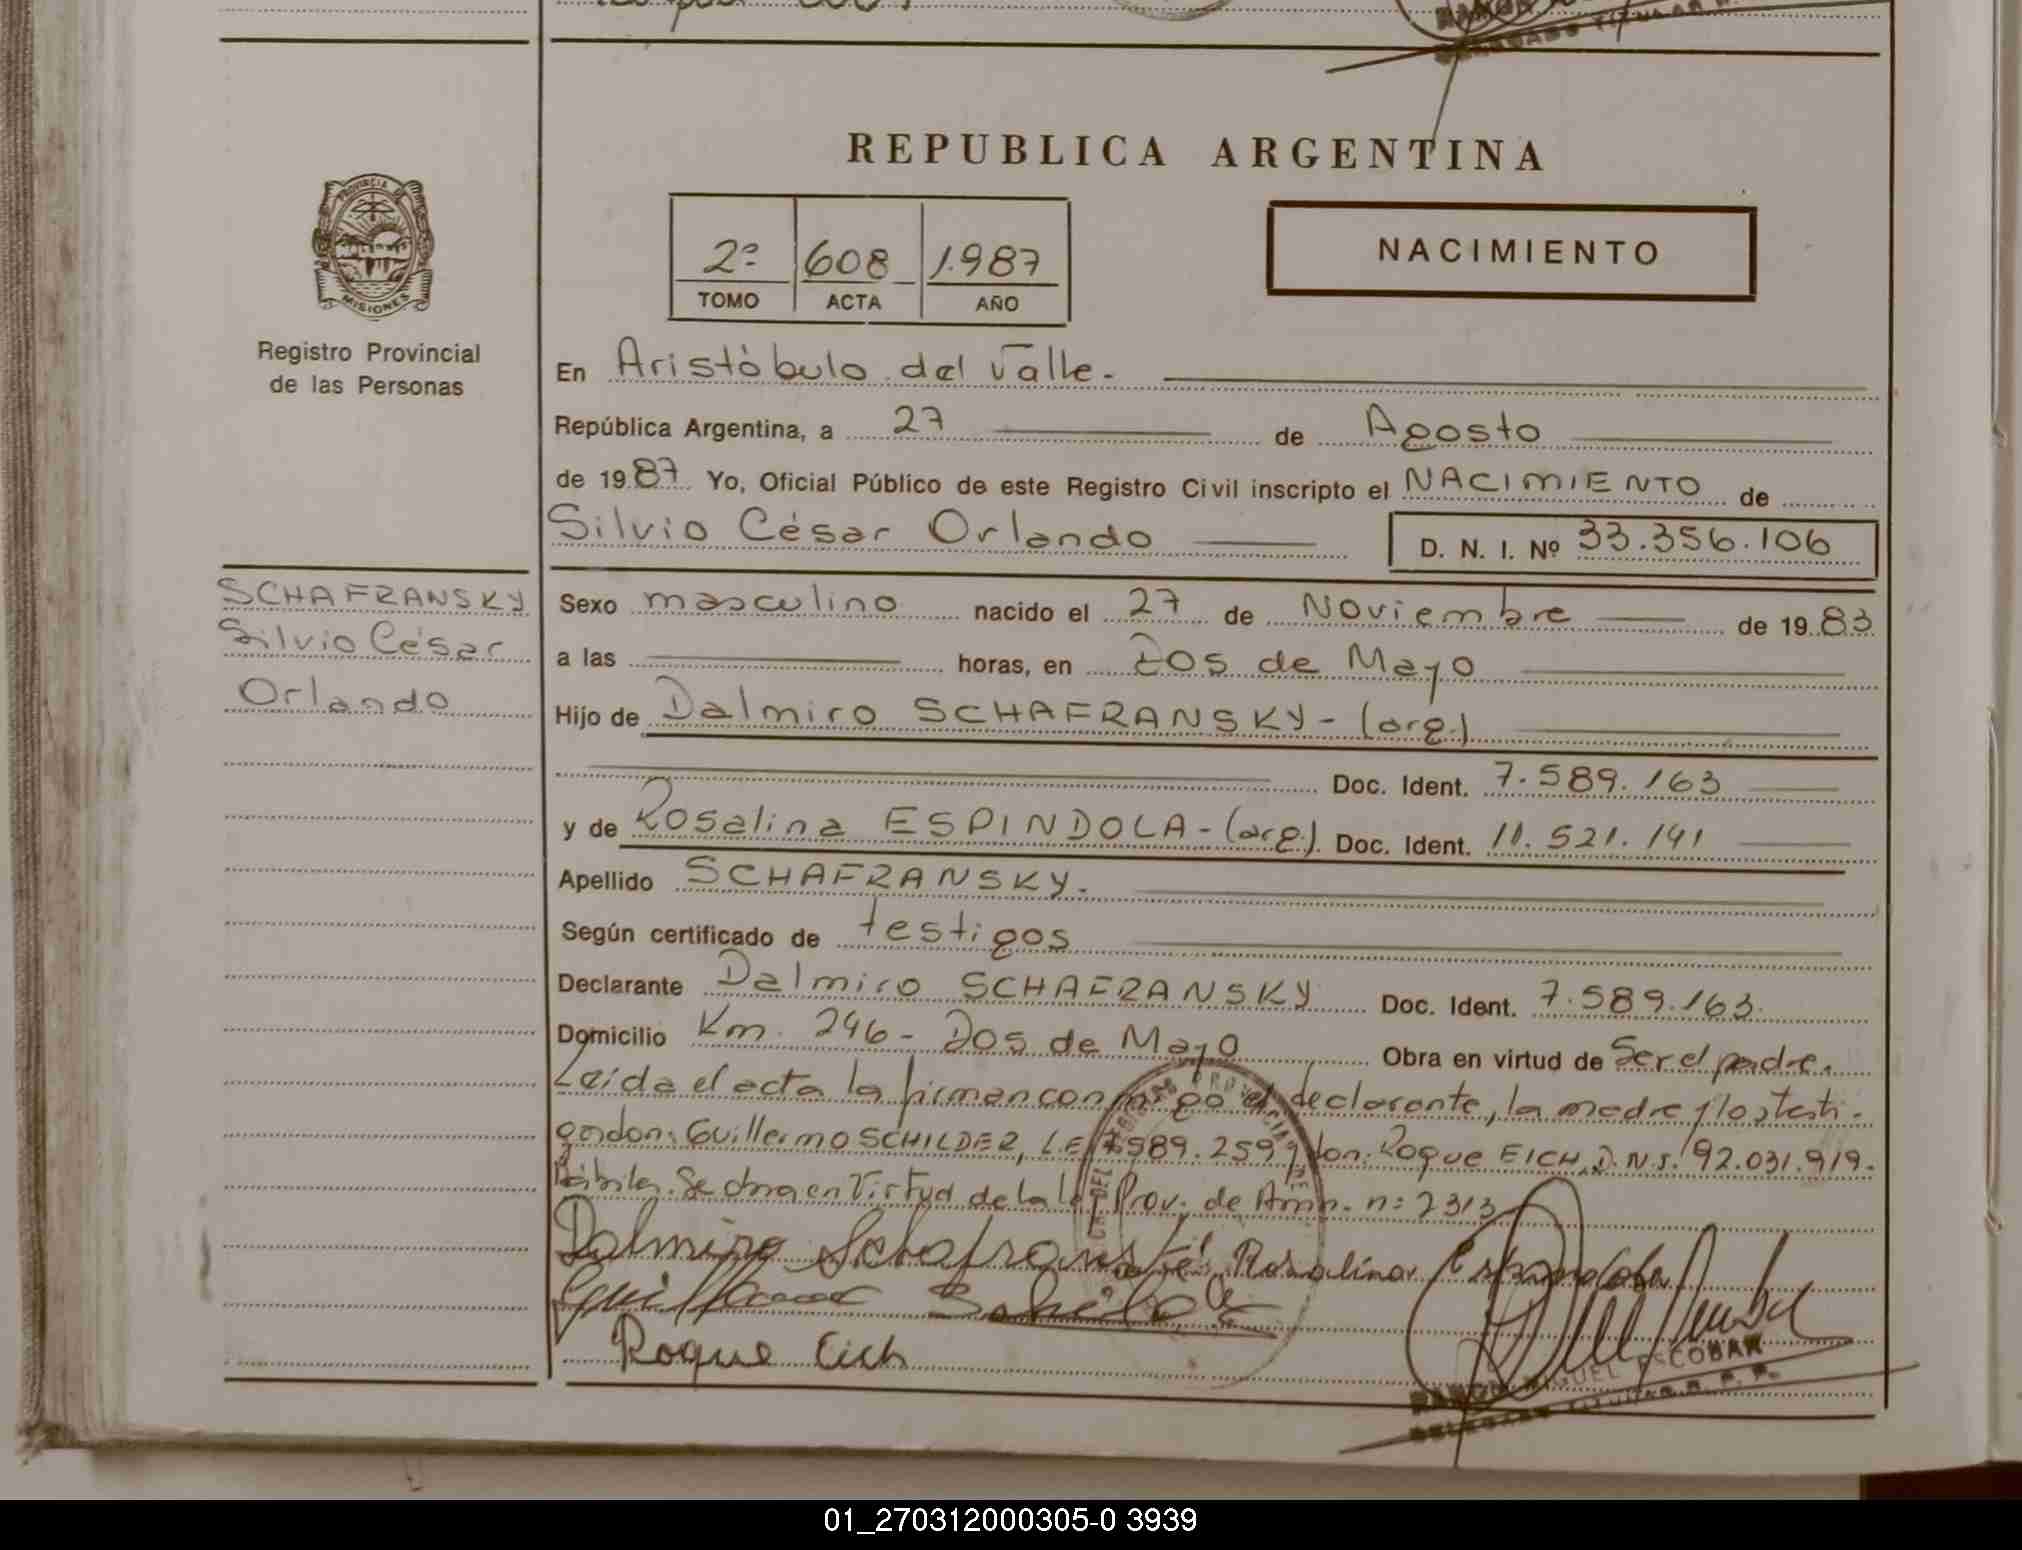 REPUBLICA ARGENTINA
PROVINCIA DE
MISIONES
Registro Provincial
de las Personas
2º 608 1.987
TOMO ACTA AÑO
NACIMIENTO
En Aristóbulo del Valle.
República Argentina, a 27 de Agosto
de 1987 Yo, Oficial Público de este Registro Civil inscripto el NACIMIENTO de
Silvio César Orlando D. N. I. Nº 33.356.106
SCHAFRANSKY
Silvio César
Orlando
Sexo masculino nacido el 27 de Noviembre de 1983
a las horas, en Dos de Mayo
Hijo de Dalmiro SCHAFRANSKY - (arg.)
Doc. Ident. 7.589.163
y de Rosalina ESPINDOLA - (arg.). Doc. Ident. 11.521.141
Apellido SCHAFRANSKY.
Según certificado de testigos
Declarante Dalmiro SCHAFRANSKY Doc. Ident. 7.589.163.
Domicilio Km. 246 - Dos de Mayo Obra en virtud de Ser el padre.
Leída el acta la firman conmigo el declarante, la madre y los testi-
gos don: Guillermo SCHILDER, L.E. 7.589.259 y don: Roque EICH, D.N.I. 92.031.919.
hábiles. Se obra en Virtud de la Prov. de Amn. n: 2313
Dalmiro Schafransky Rosalina Espindola
Guillermo Schilder
Roque Eich
RAMON MIGUEL ESCOBAR
DELEGADO TITULAR R. P. P.
01_270312000305-0 3939